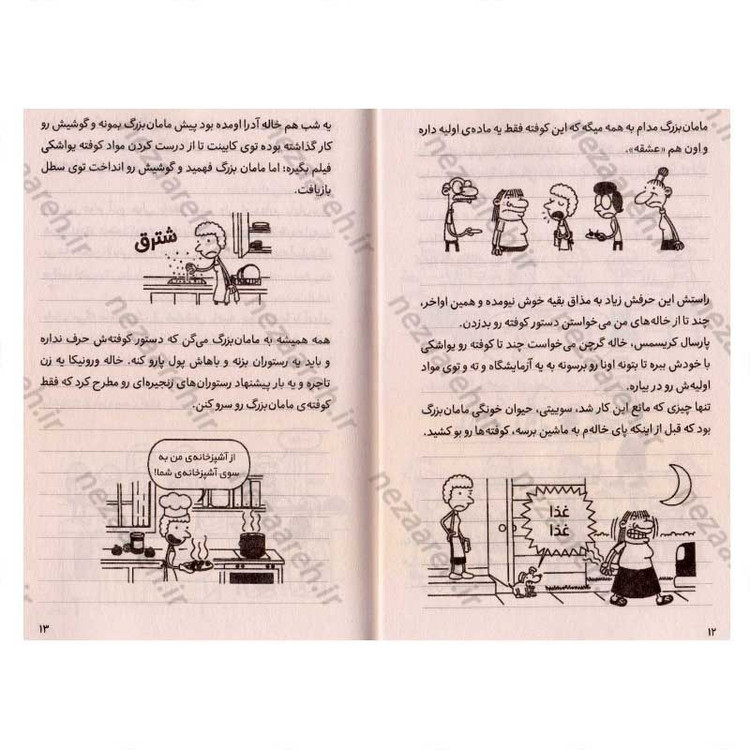 مامان‌بزرگ مدام به همه میگه که این کوفته فقط یه ماده‌ی اولیه داره
و اون هم «عشقه».
راستش این حرفش زیاد به مذاق بقیه خوش نیومده و همین اواخر،
چند تا از خاله‌های من می‌خواستن دستور کوفته رو بدزدن.
پارسال کریسمس، خاله گرچن می‌خواست چند تا کوفته رو یواشکی
با خودش ببره تا بتونه اونا رو برسونه به یه آزمایشگاه و ته و توی مواد
اولیه‌ش رو در بیاره.
تنها چیزی که مانع این کار شد، سوییتی، حیوان خونگی مامان‌بزرگ
بود که قبل از اینکه پای خاله‌م به ماشین برسه، کوفته‌ها رو بو کشید.
غذا
غذا
۱۲
یه شب هم خاله آدرا اومده بود پیش مامان‌بزرگ بمونه و گوشیش رو
کار گذاشته بوده توی کابینت تا از درست کردن مواد کوفته یواشکی
فیلم بگیره؛ اما مامان بزرگ فهمید و گوشیش رو انداخت توی سطل
بازیافت.
شترق
همه همیشه به مامان‌بزرگ می‌گن که دستور کوفته‌ش حرف نداره
و باید یه رستوران بزنه و باهاش پول پارو کنه. خاله ورونیکا یه زن
تاجره و یه بار پیشنهاد رستوران‌های زنجیره‌ای رو مطرح کرد که فقط
کوفته‌ی مامان‌بزرگ رو سرو کنن.
از آشپزخانه‌ی من به
سوی آشپزخانه‌ی شما!
۱۳
nezaareh.ir